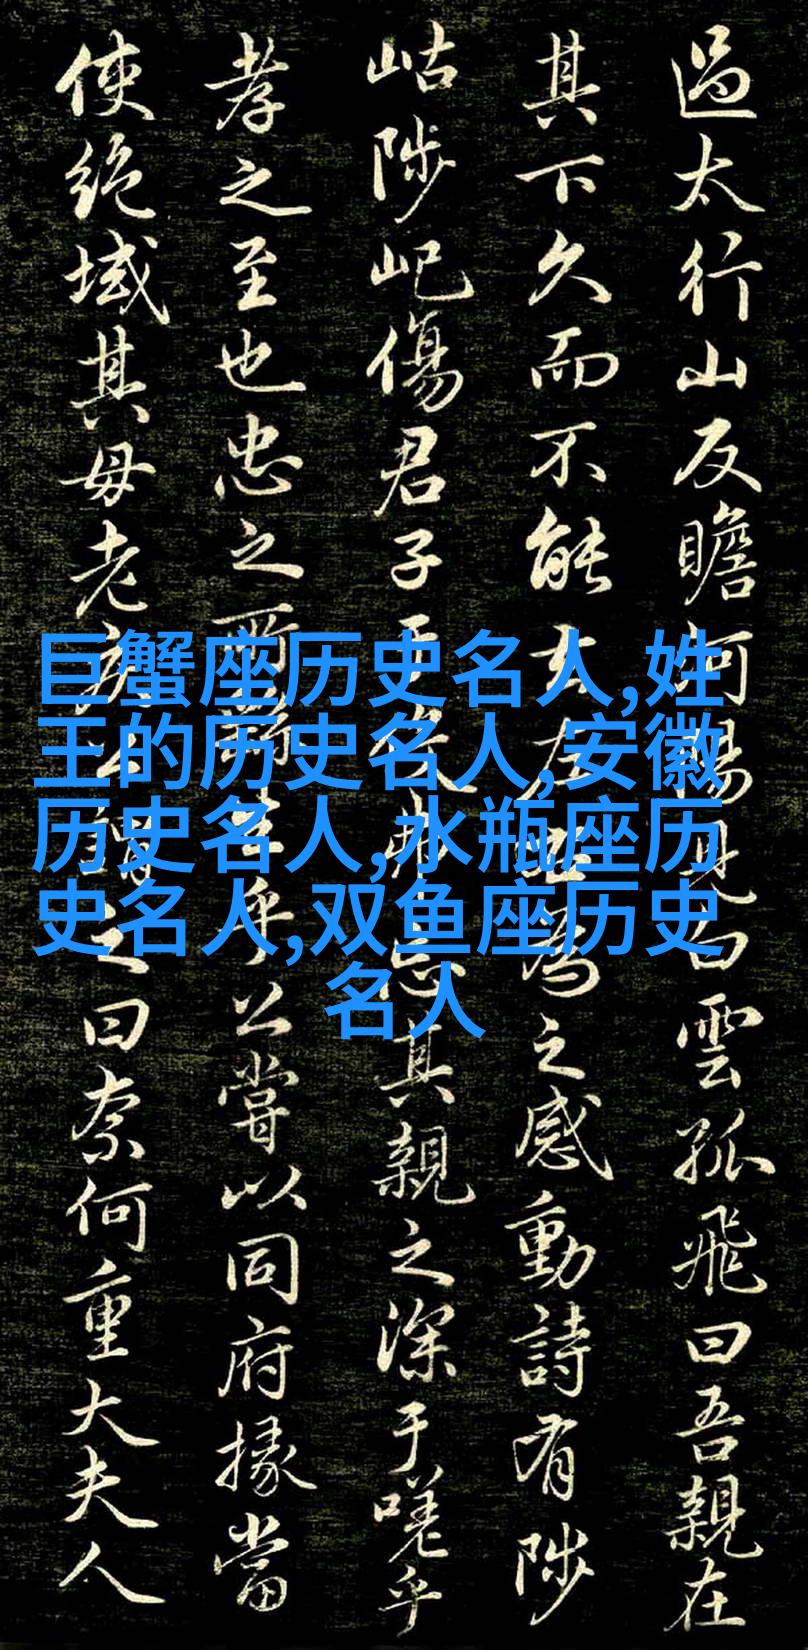 過太行山反瞻河陽見白雲孤飛曰吾親在
其下久而不能去左右為之感動詩有陟
岵陟屺傷君子于役弗忘其親之深于嗟乎
孝之至也忠之所繇生乎公嘗以同府掾當
使絕域其母老疾公謂之曰奈何重大夫人
巨蟹座历史名人,姓
王的历史名人,安徽
历史名人,水瓶座历
史名人,双鱼座历史
名人